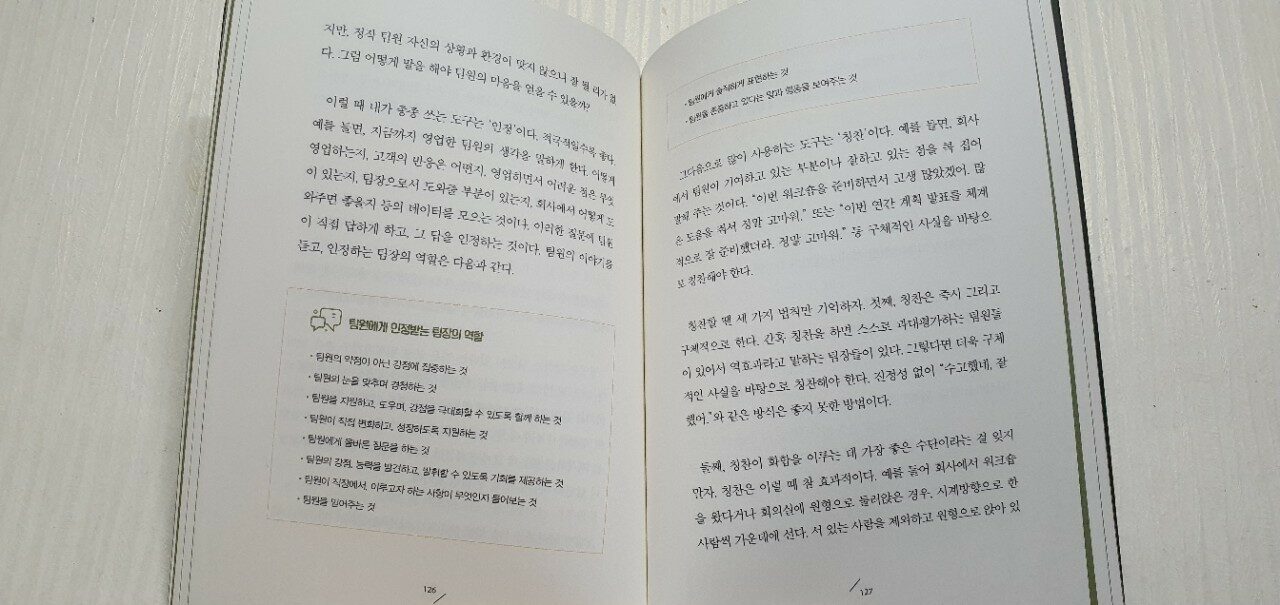 지만, 정작 팀원 자신의 상황과 환경이 맞지 않으니 잘 될 리가 없
다. 그럼 어떻게 말을 해야 팀원의 마음을 얻을 수 있을까?
이럴 때 내가 종종 쓰는 도구는 ‘인정’이다. 적극적일수록 좋다.
예를 들면, 지금까지 영업한 팀원의 생각을 말하게 한다. 어떻게
영업하는지, 고객의 반응은 어떤지, 영업하면서 어려운 점은 무엇
이 있는지, 팀장으로서 도와줄 부분이 있는지, 회사에서 어떻게 도
와주면 좋을지 등의 데이터를 모으는 것이다. 이러한 질문에 팀원
이 직접 답하게 하고, 그 답을 인정하는 것이다. 팀원의 이야기를
듣고, 인정하는 팀장의 역할은 다음과 같다.
팀원에게 인정받는 팀장의 역할
· 팀원의 약점이 아닌 강점에 집중하는 것
· 팀원의 눈을 맞추며 경청하는 것
· 팀원을 지원하고, 도우며, 강점을 극대화할 수 있도록 함께 하는 것
· 팀원이 직접 변화하고, 성장하도록 지원하는 것
· 팀원에게 올바른 질문을 하는 것
· 팀원의 강점, 능력을 발견하고, 발휘할 수 있도록 기회를 제공하는 것
· 팀원이 직장에서, 이루고자 하는 사항이 무엇인지 물어보는 것
· 팀원을 믿어주는 것
126
· 팀원에게 솔직하게 표현하는 것
· 팀원을 존중하고 있다는 말과 행동을 보여주는 것
그다음으로 많이 사용하는 도구는 ‘칭찬’이다. 예를 들면, 회사
에서 팀원이 기여하고 있는 부분이나 잘하고 있는 점을 콕 집어
말해 주는 것이다. “이번 워크숍을 준비하면서 고생 많았겠어. 많
은 도움을 줘서 정말 고마워.” 또는 “이번 연간 계획 발표를 체계
적으로 잘 준비했더라. 정말 고마워.” 등 구체적인 사실을 바탕으
로 칭찬해야 한다.
칭찬할 땐 세 가지 법칙만 기억하자. 첫째, 칭찬은 즉시 그리고
구체적으로 한다. 간혹 칭찬을 하면 스스로 과대평가하는 팀원들
이 있어서 역효과라고 말하는 팀장들이 있다. 그렇다면 더욱 구체
적인 사실을 바탕으로 칭찬해야 한다. 진정성 없이 “수고했네, 잘
했어.”와 같은 방식은 좋지 못한 방법이다.
둘째, 칭찬이 화합을 이루는 데 가장 좋은 수단이라는 걸 잊지
말자. 칭찬은 이럴 때 참 효과적이다. 예를 들어 회사에서 워크숍
을 왔다거나 회의실에 원형으로 둘러앉은 경우, 시계방향으로 한
사람씩 가운데에 선다. 서 있는 사람을 제외하고 원형으로 앉아 있
127